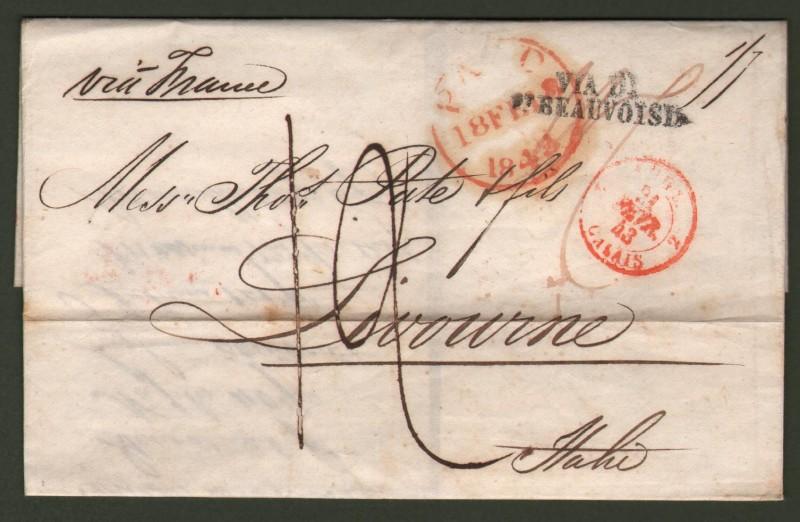 via France
PAID
18 FE
1843
VIA DI
PT BEAUVOISIN
1/7
Messrs Thos Pate & fils
21
FEVR.
43
CALAIS
2
Livourne
Italie